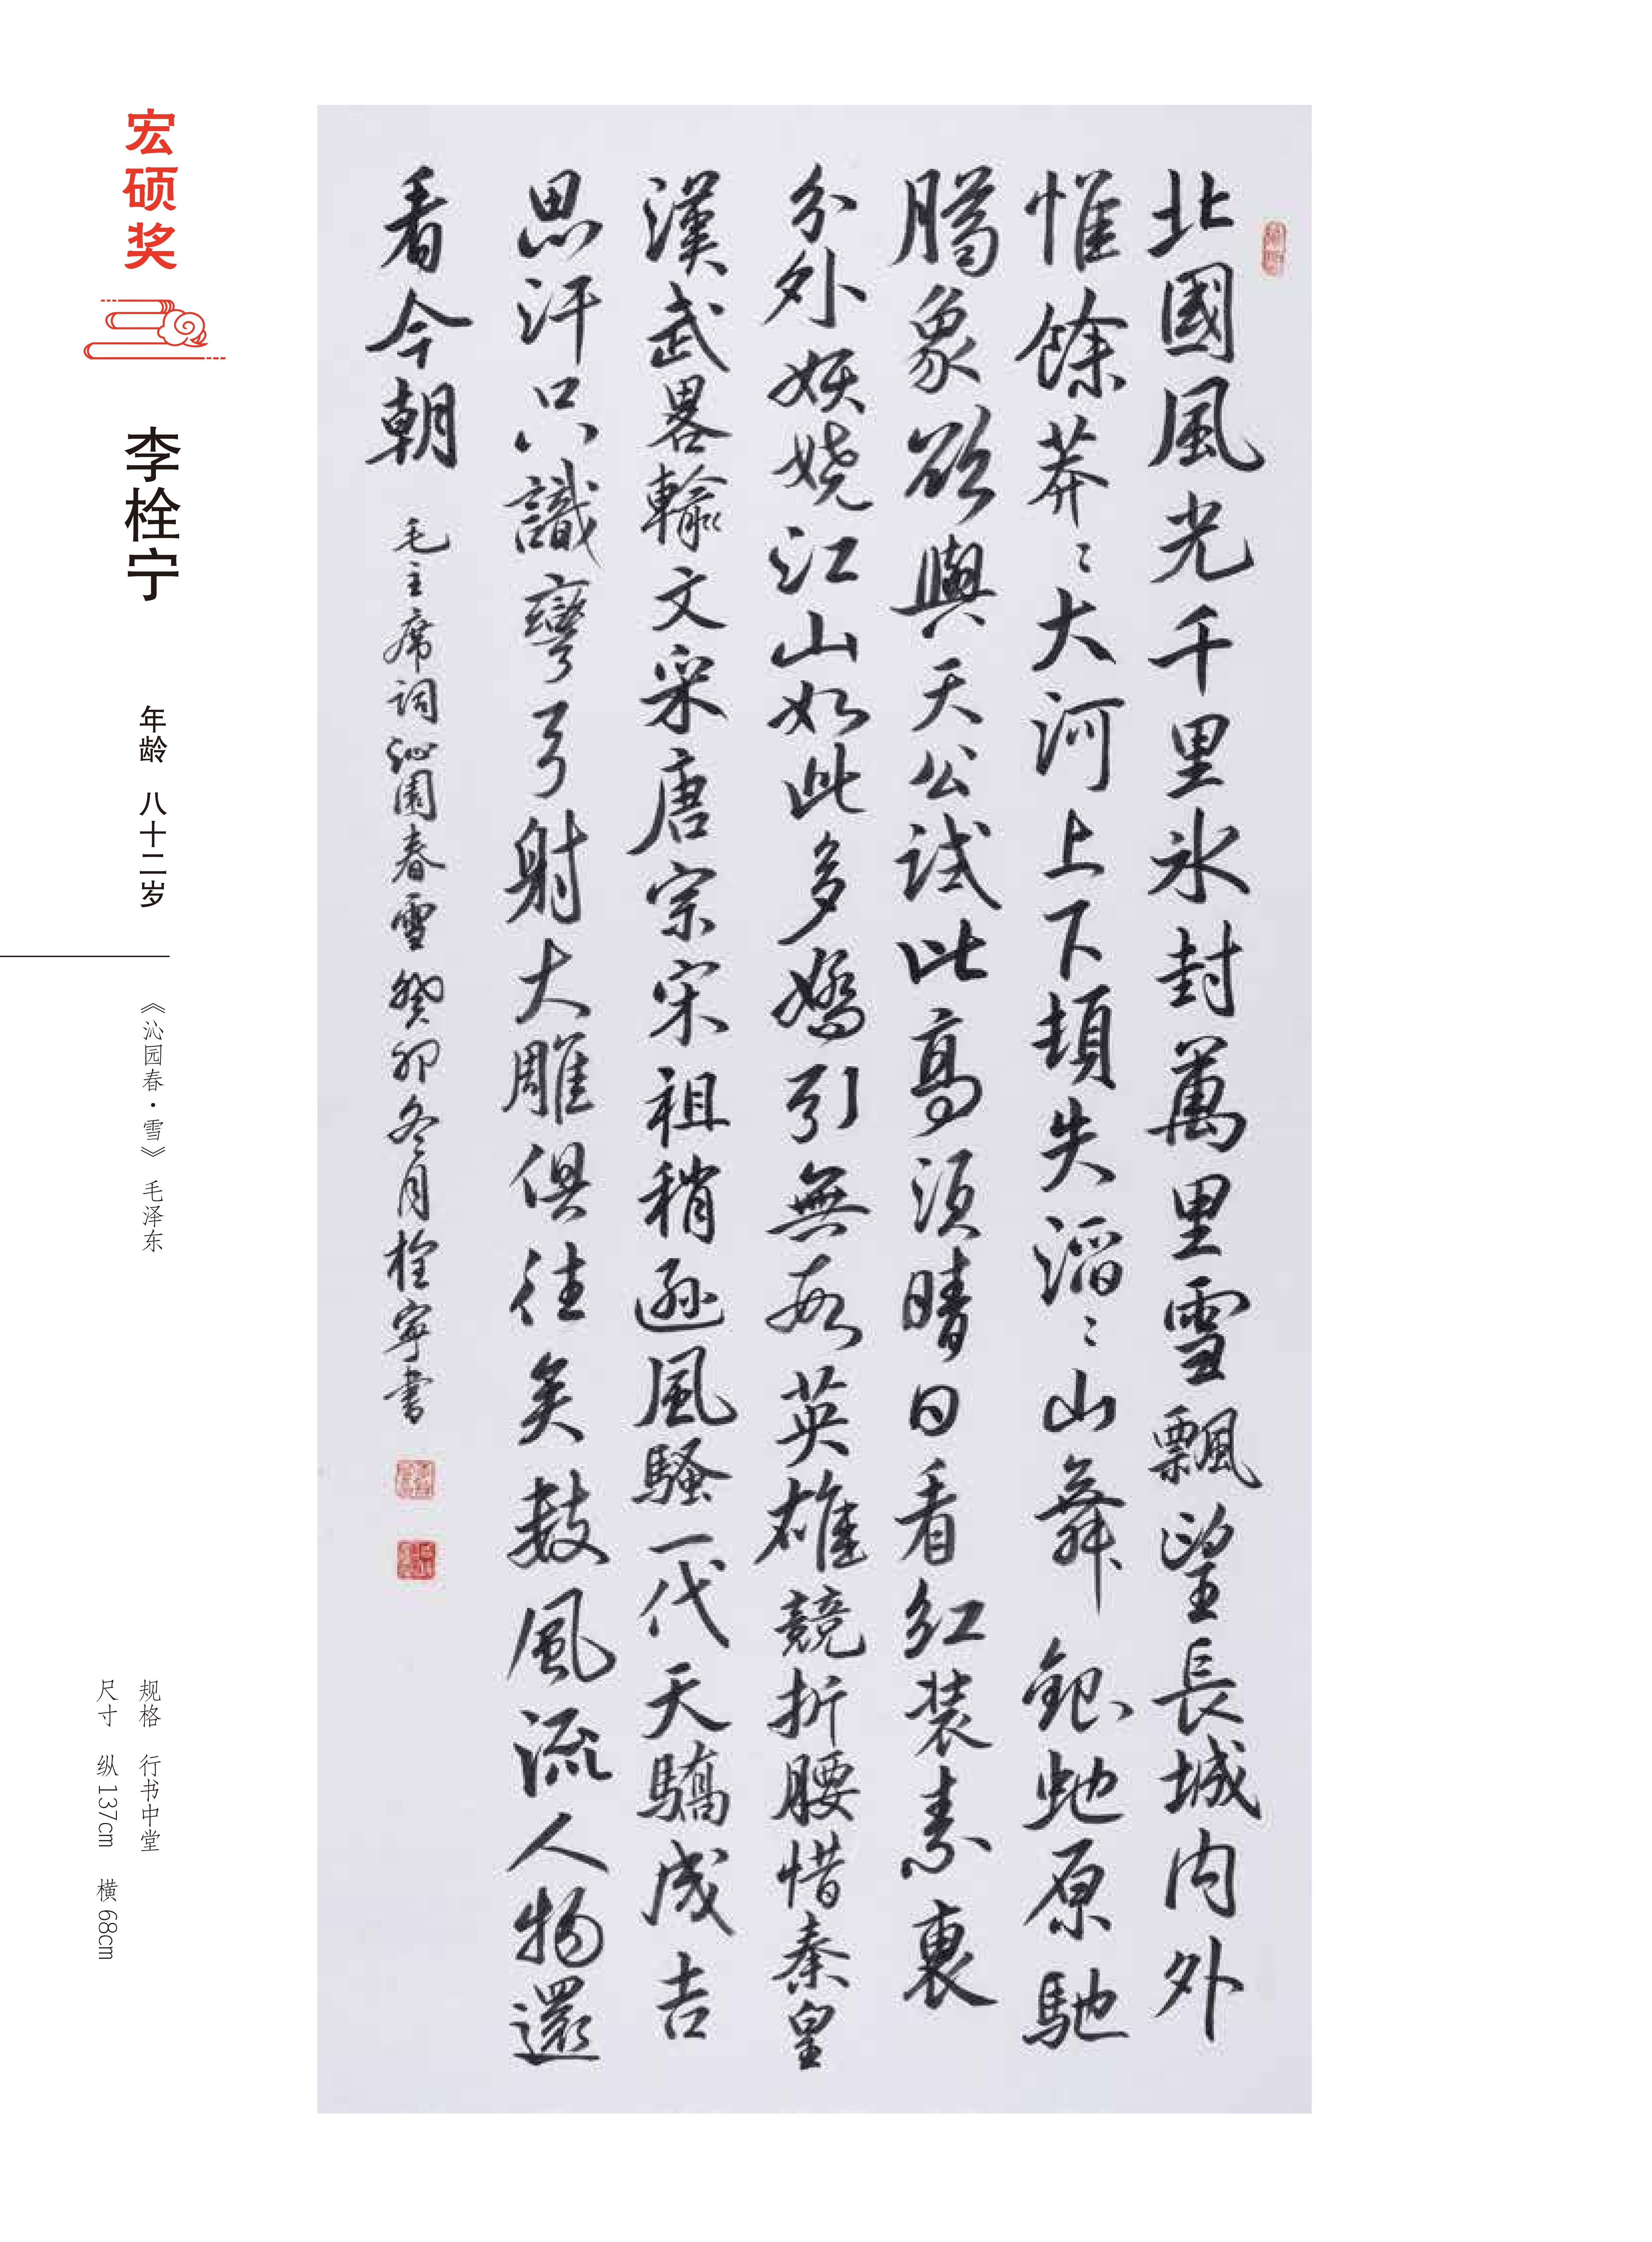 宏硕奖
李栓宁
年龄 八十二岁
《沁园春·雪》毛泽东
规格 行书中堂
尺寸 纵137cm 横68cm
北國風光千里冰封萬里雪飄望長城内外
惟餘莽〻大河上下頓失滔〻山舞銀虵原馳
臈象欲與天公試比高須晴日看紅装素裹
分外妖嬈江山如此多嬌引無數英雄競折腰惜秦皇
漢武畧輸文采唐宗宋祖稍遜風騷一代天驕成吉
思汗只識彎弓射大雕俱往矣數風流人物還
看今朝
毛主席詞沁園春雪癸卯冬月栓寧書